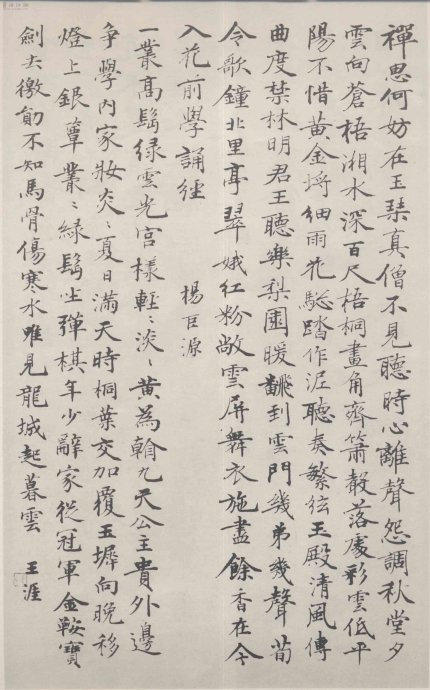 禪思何妨在玉琴真僧不見聽時心離聲怨調秋堂夕
雲向蒼梧湘水深百尺梧桐畫角齊簫聲落處彩雲低平
陽不惜黃金埒細雨花驄踏作泥聽奏繁弦玉殿清風傳
曲度禁林明君王聽樂梨園暖飜到雲門幾弟幾聲荀
令歌鐘北里亭翠娥紅粉敞雲屏舞衣施盡餘香在今
入花前學誦經
楊巨源
一叢高鬢綠雲光宮樣輕輕淡淡黃為翰九天公主貴外邊
爭學內家妝炎炎夏日滿天時桐葉交加覆玉墀向晚移
燈上銀簟叢叢綠鬢坐彈棋年少辭家從冠軍金鞍寶
劍去徼勛不知馬骨傷寒水唯見龍城起暮雲
王涯